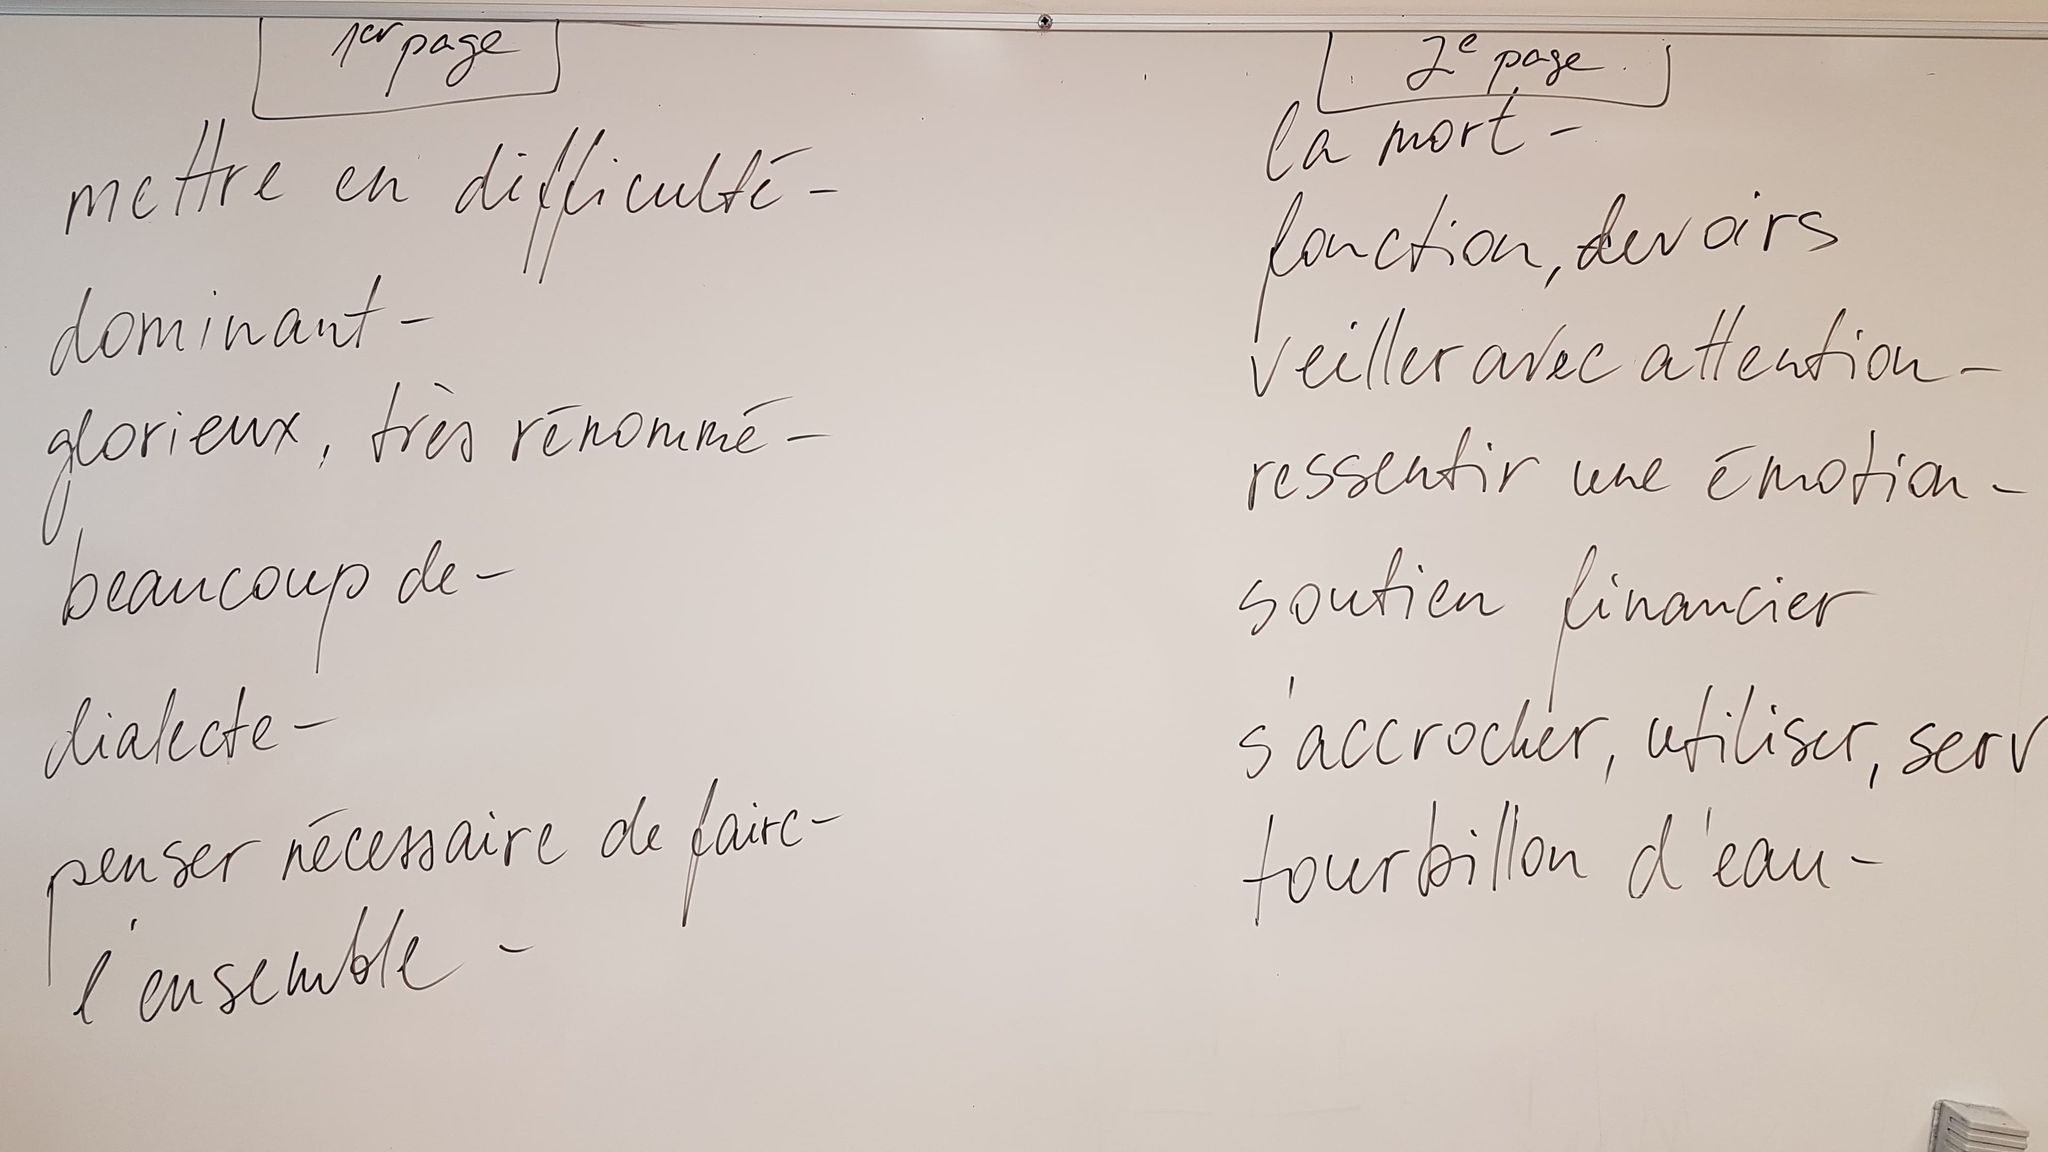 1er page
mettre en difficulté -
dominant -
glorieux, très rénommé -
beaucoup de -
dialecte -
penser nécessaire de faire -
l'ensemble -
2e page
la mort -
fonction, devoirs
veiller avec attention -
ressentir une émotion -
soutien financier
s'accrocher, utiliser, serv
tourbillon d'eau -